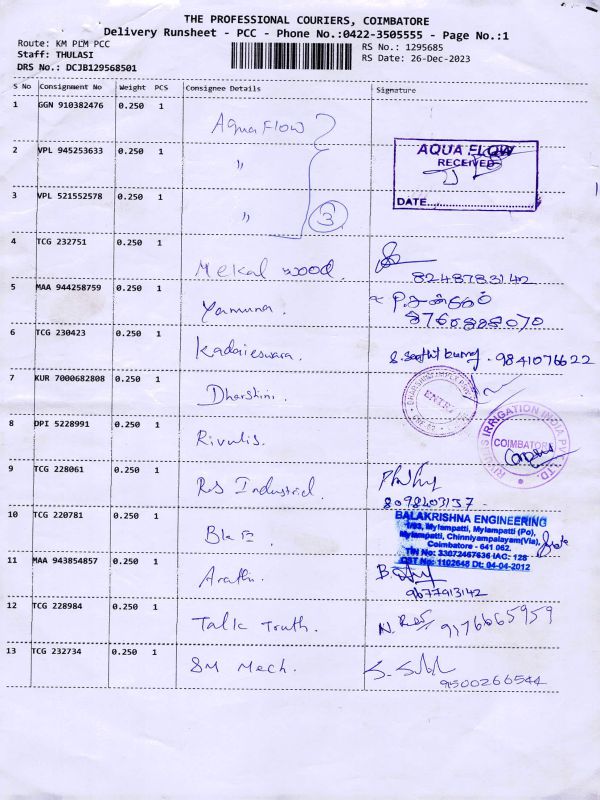 THE PROFESSIONAL COURIERS, COIMBATORE
Delivery Runsheet - PCC - Phone No.:0422-3505555 - Page No.:1
Route: KM PLM PCC
Staff: THULASI
DRS No.: DCJB129568501
RS No.: 1295685
RS Date: 26-Dec-2023
S No Consignment No Weight PCS Consignee Details Signature
1 GGN 910382476 0.250 1 Aqua Flow
2 VPL 945253633 0.250 1 "
AQUA FLOW
RECEIVED
DATE
3 VPL 521552578 0.250 1 "
3
4 TCG 232751 0.250 1 Mekal wood.
8248783142
5 MAA 944258759 0.250 1 Yamuna.
6 TCG 230423 0.250 1 Kadaieswara. 9841076622
7 KUR 7000682808 0.250 1 Dharshini.
8 DPI 5228991 0.250 1 Rivulis.
IRRIGATION INDIA PVT. LTD.
COIMBATORE
9 TCG 228061 0.250 1 RS Industrial.
8098403137
10 TCG 220781 0.250 1
BALAKRISHNA ENGINEERING
1/93, Mylampatti, Mylampatti (Po),
Mylampatti, Chinniyampalayam(Via),
Coimbatore - 641 062.
TIN No: 33072467636 IAC: 128
CST No: 1102648 Dt: 04-04-2012
11 MAA 943854857 0.250 1 Arathi.
9677913142
12 TCG 228984 0.250 1 Talk Truth. 9176665959
13 TCG 232734 0.250 1 SM Mech.
9500266544